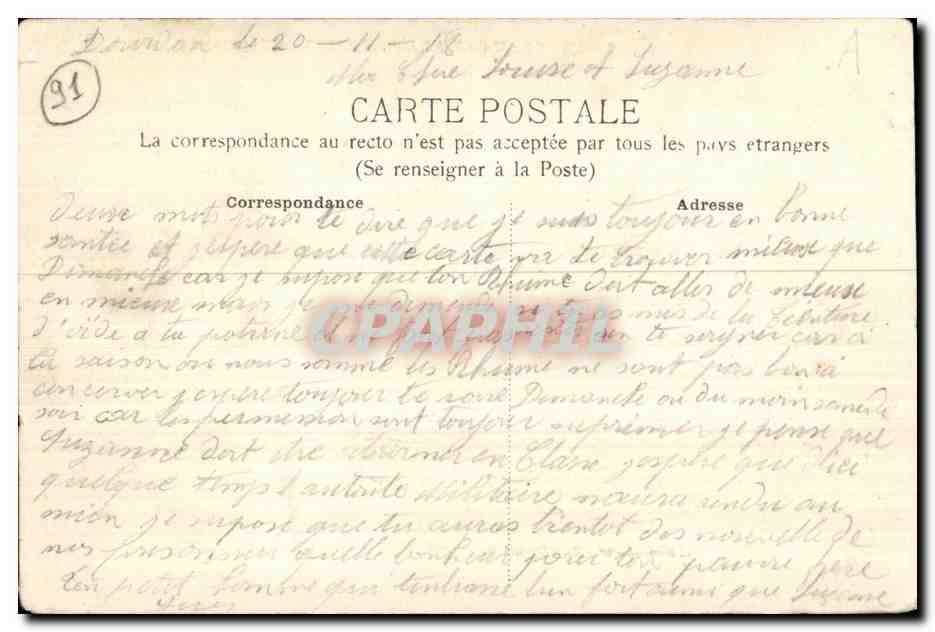 Dourdan le 20-11-18
Ma Chere Louise et Suzanne
91
A
CARTE POSTALE
La correspondance au recto n'est pas acceptée par tous les pays etrangers
(Se renseigner à la Poste)
Correspondance
Adresse
deuse mots pour te dire que je suis toujour en bonne
santée et jespere que cette carte va te trouver mieuse que
Dimanche car je supose que ton Rhume doit aller de mieuse
en mieuse mais je me demande si tu as mis de la teinture
d'iode a ta poitrine il faut bien te soigner car a
la saison ou nous somme les Rhume ne sont pas bon a
concerver jespere toujour te voir Dimanche ou du moin samedi
soir car les permession sont toujour suprimer je pense que
Suzanne doit être retourner en Classe jespere que dici
quelque temps l'autorité Militaire maura rendu au
mien je supose que tu auras bientot des nouvelle de
nos prisonnier quelle bonheur pour ton pauvre pere
ton petit homme qui tembrasse bien fort ainsi que Suzanne
CPAPHIL